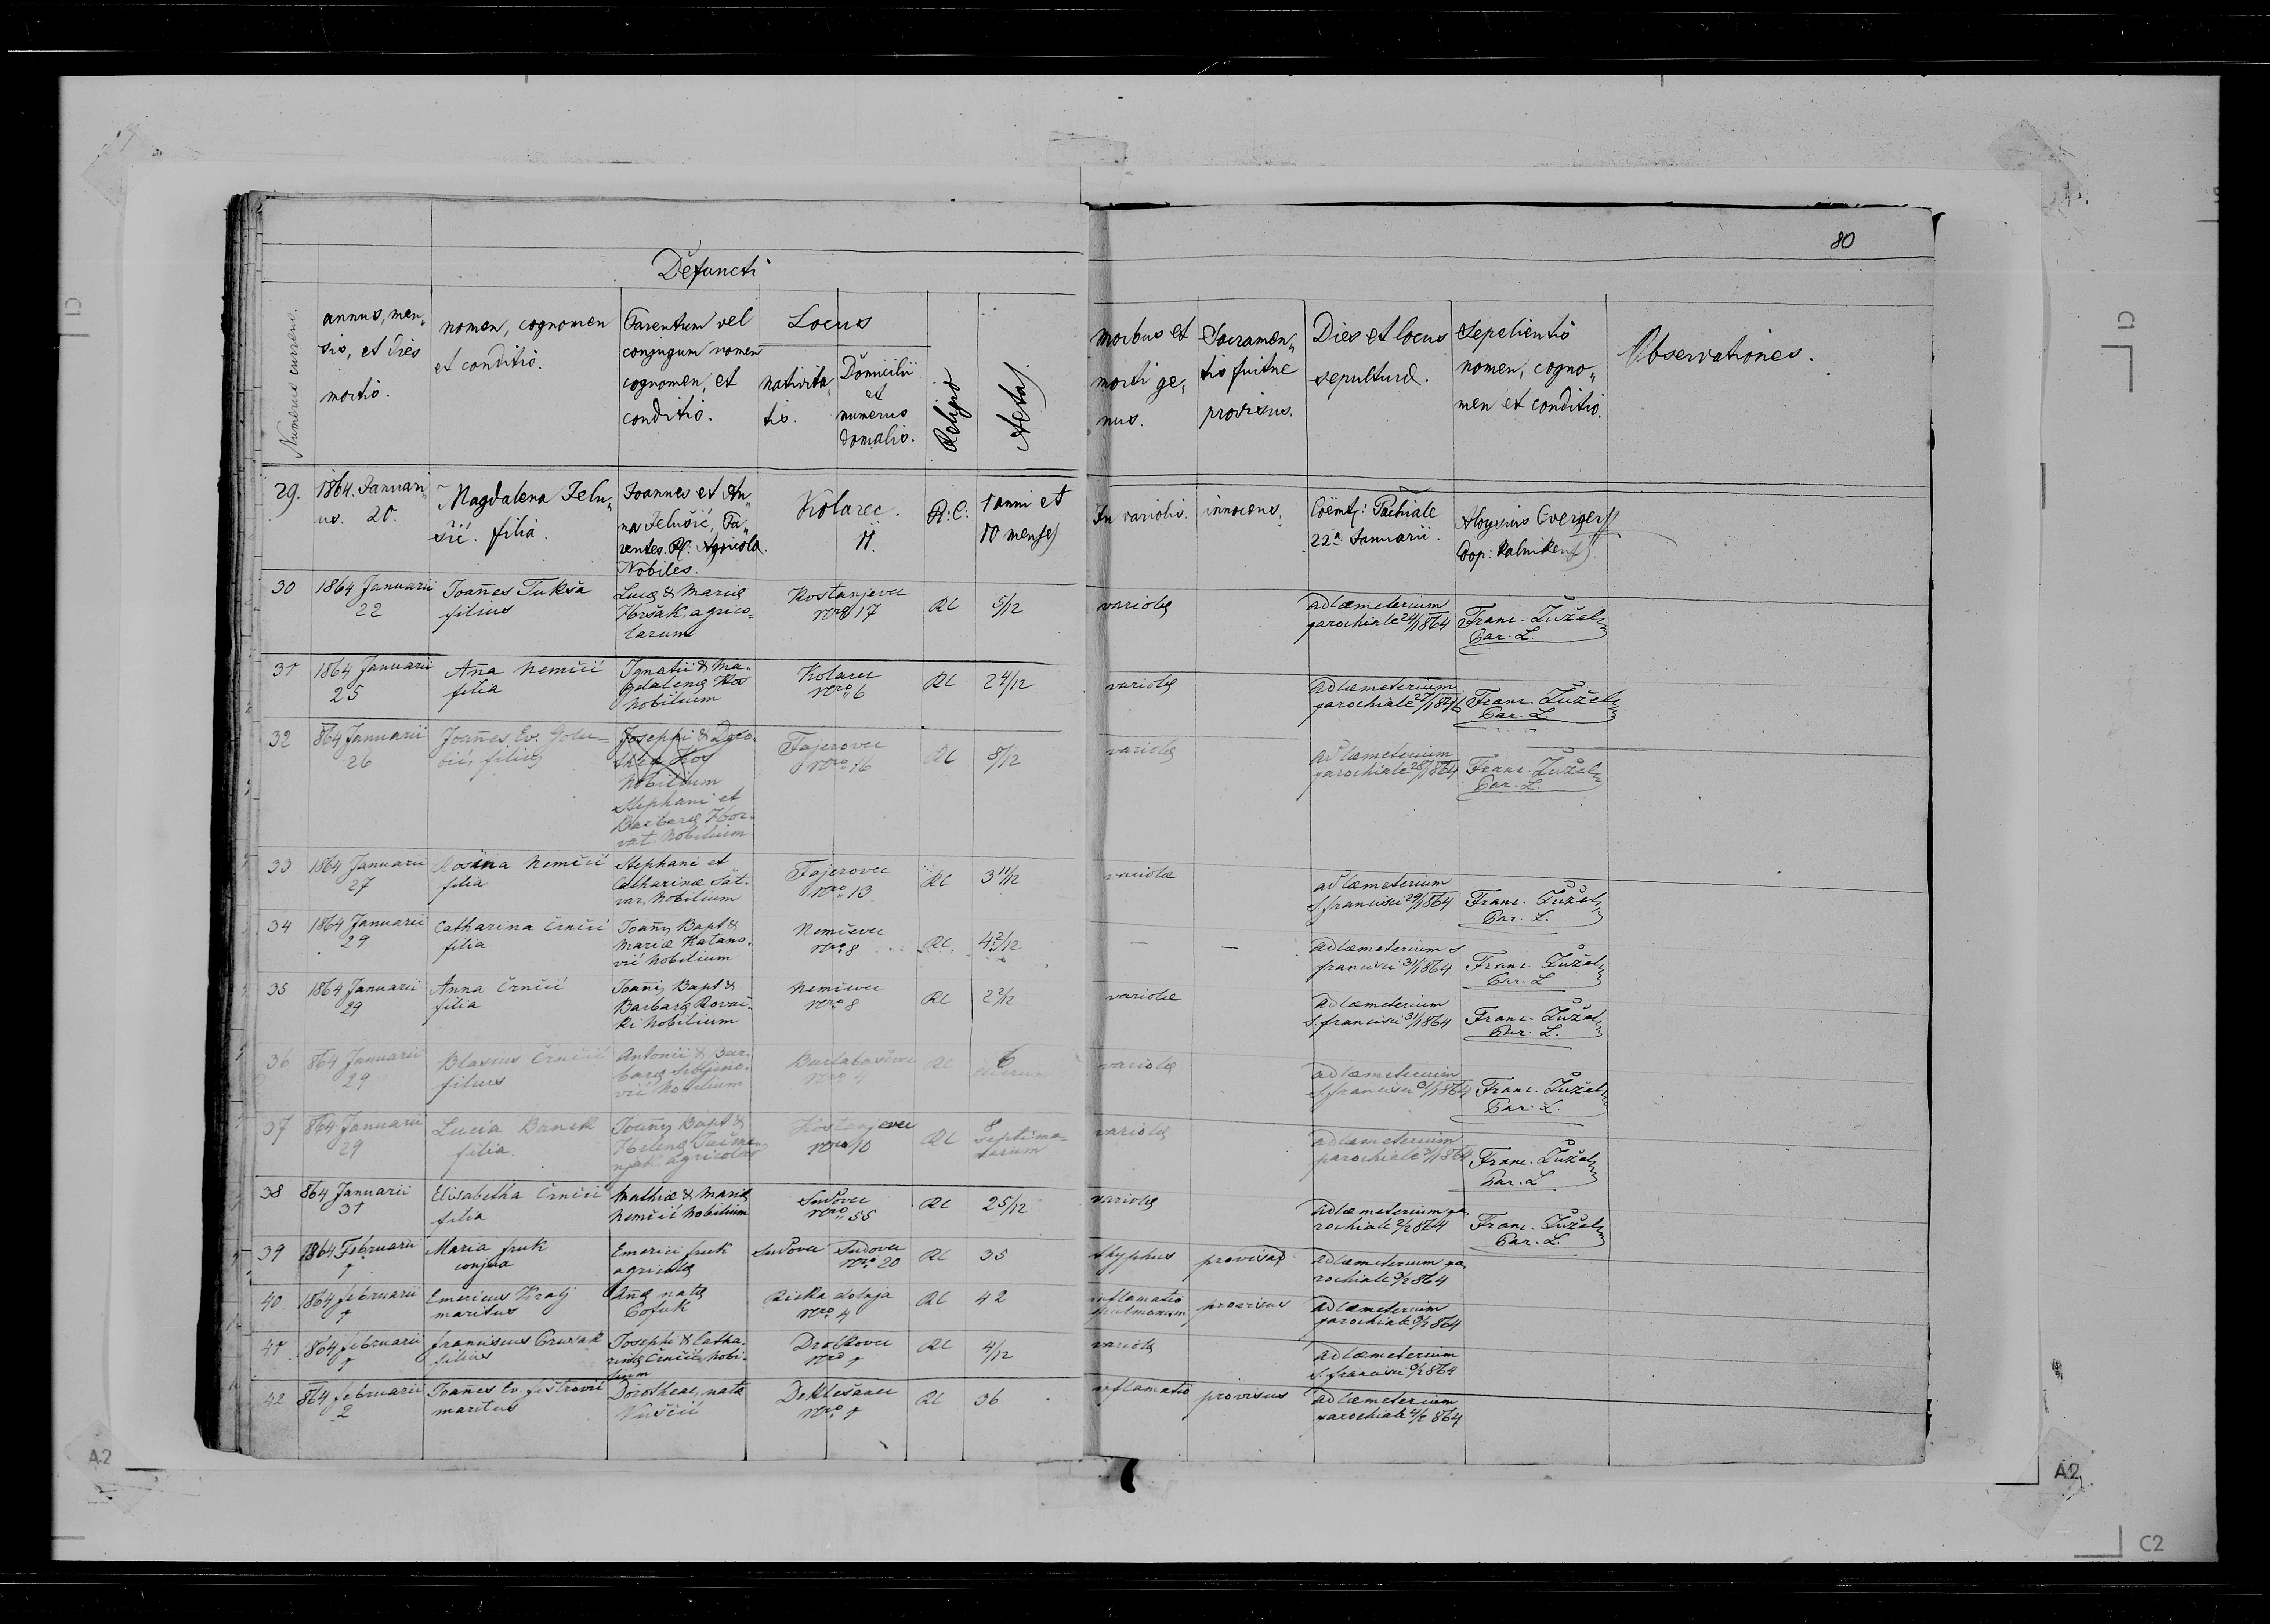 80
Defuncti
Numerus currens.
annus, men„
sis, et dies
mortis.
nomen, cognomen
et conditio.
Parentum vel
conjugum nomen
cognomen, et
conditio.
Locus
nativita„
tis.
Domicilii
et
numerus
domalis.
Religio
Aetas
Morbus et
morti ge„
nus.
Sacramen„
tis fuitne
provisus.
Dies et locus
sepulturæ.
Sepelientis
nomen, cogno„
men et conditio.
Observationes.
29.
1864. Januari„
us. 20.
Magdalena Jelu„
šić. filia.
Joannes et An„
na Jelušić, Pa„
rentes. Agricola.
Nobiles.
Kolarec.
11.
R: C:
1 anni et
10 menses
In variolis.
innocens.
Cöemt: Pachiale
22a Januarii.
Aloysius
Cop: Kalniken
30
1864 Januarii
22
Joañes Tukša
filius
Lucæ & Mariæ
Hršak, agrico„
larum
Kostanjevec
Nro 17
RC
5/12
variolæ
ad cæmeterium
parochiale 24/1 864
Franc. Žužel
Par. L.
31
1864 Januarii
25
Aña Nemčić
filia
Ignatii & Ma„
gdalenæ Kos
Nobilium
Kolarec
Nro 6
RC
2 4/12
variolæ
ad cæmeterium
parochiale 27/1
Franc Žužel
Par. L.
32
864 Januarii
26
Joañes Ev. Golu=
bić, filius
Josephi & Doro.
theæ Kos
Nobilium
Stephani et
Barbaræ Hor.
vat. Nobilium
Fajerovec
Nro 16
RC
8/12
variolæ
ad cæmeterium
parochiale 28/1 864
Franc. Žužel
Par. L.
33
1864 Januarii
27
Rosina Nemčić
filia
Stephani et
Catharinæ Šat.
var. Nobilium
Fajerovec
Nro 13
RC
3 11/12
variolæ
ad cæmeterium
S. francisci 29/1 864
Franc. Žužel
Par. L.
34
1864 Januarii
29
Catharina Črnčić
filia
Joañis Bapt &
Mariæ Katano.
vić Nobilium
Nemčevec
Nro 8
RC
4 2/12
—
—
ad cæmeterium S
francisci 31/1 864
Franc. Žužel
Par. L
35
1864 Januarii
29
Anna Črnčić
filia
Joanis Bapt &
Barbaræ Kovač.
ki Nobilium
Nemčevec
Nro 8
RC
2 2/12
variolæ
ad cæmeterium
S. francisci 31/1 864
Franc. Žužel
Par. L.
36
864 Januarii
29
Blasius Črnčić
filius
Antonii & Bar.
baræ
vić Nobilium
Nro 4
RC
6
variolæ
ad cæmeterium
S. francisci 31/1 864
Franc. Žužel
Par. L.
37
864 Januarii
29
Lucia Banek
filia.
Joañis Bapt &
Helenæ
agricolar
Kostanjevec
Nro 10
RC
8
septima=
narum
variolæ
ad cæmeterium
parochiale 31/1 864
Franc. Žužel
Par. L
38
864 Januarii
31
Elisabetha Črnčić
filia
Mathiæ & Mariæ
Nemčić Nobilium
Sudovec
Nro 55
RC
2 5/12
variolæ
ad cæmeterium pa.
rochiale 2/2 864
Franc. Žužel
Par. L.
39
1864 Februarii
1
Maria fruk
conjux
Emerici fruk
agricolæ
Sudovec
Sudovec
Nro 20
RC
35
thyphus
provisa
ad cæmeterium pa.
rochiale 3/2 864
40
1864 februarii
1
Emericus Kralj
maritus
Añæ natæ
Cofuk
Rieka dolnja
Nro 4
RC
42
inflamatio
pulmonum
provisus
ad cæmeterium
parochiale 3/2 864
41
864 februarii
1
franciscus
filius
Josephi & Catha.
rinæ Črnčić, Nobi.
lium
Nro 1
RC
4/12
variolæ
ad cæmeterium
S. francisci 3/2 864
42
864 februarii
2
Joañes Ev.
maritus
Dorotheae, natæ
Nro 1
RC
36
inflamatio
provisus
ad cæmeterium
parochiale 4/2 864
A2
A2
C2